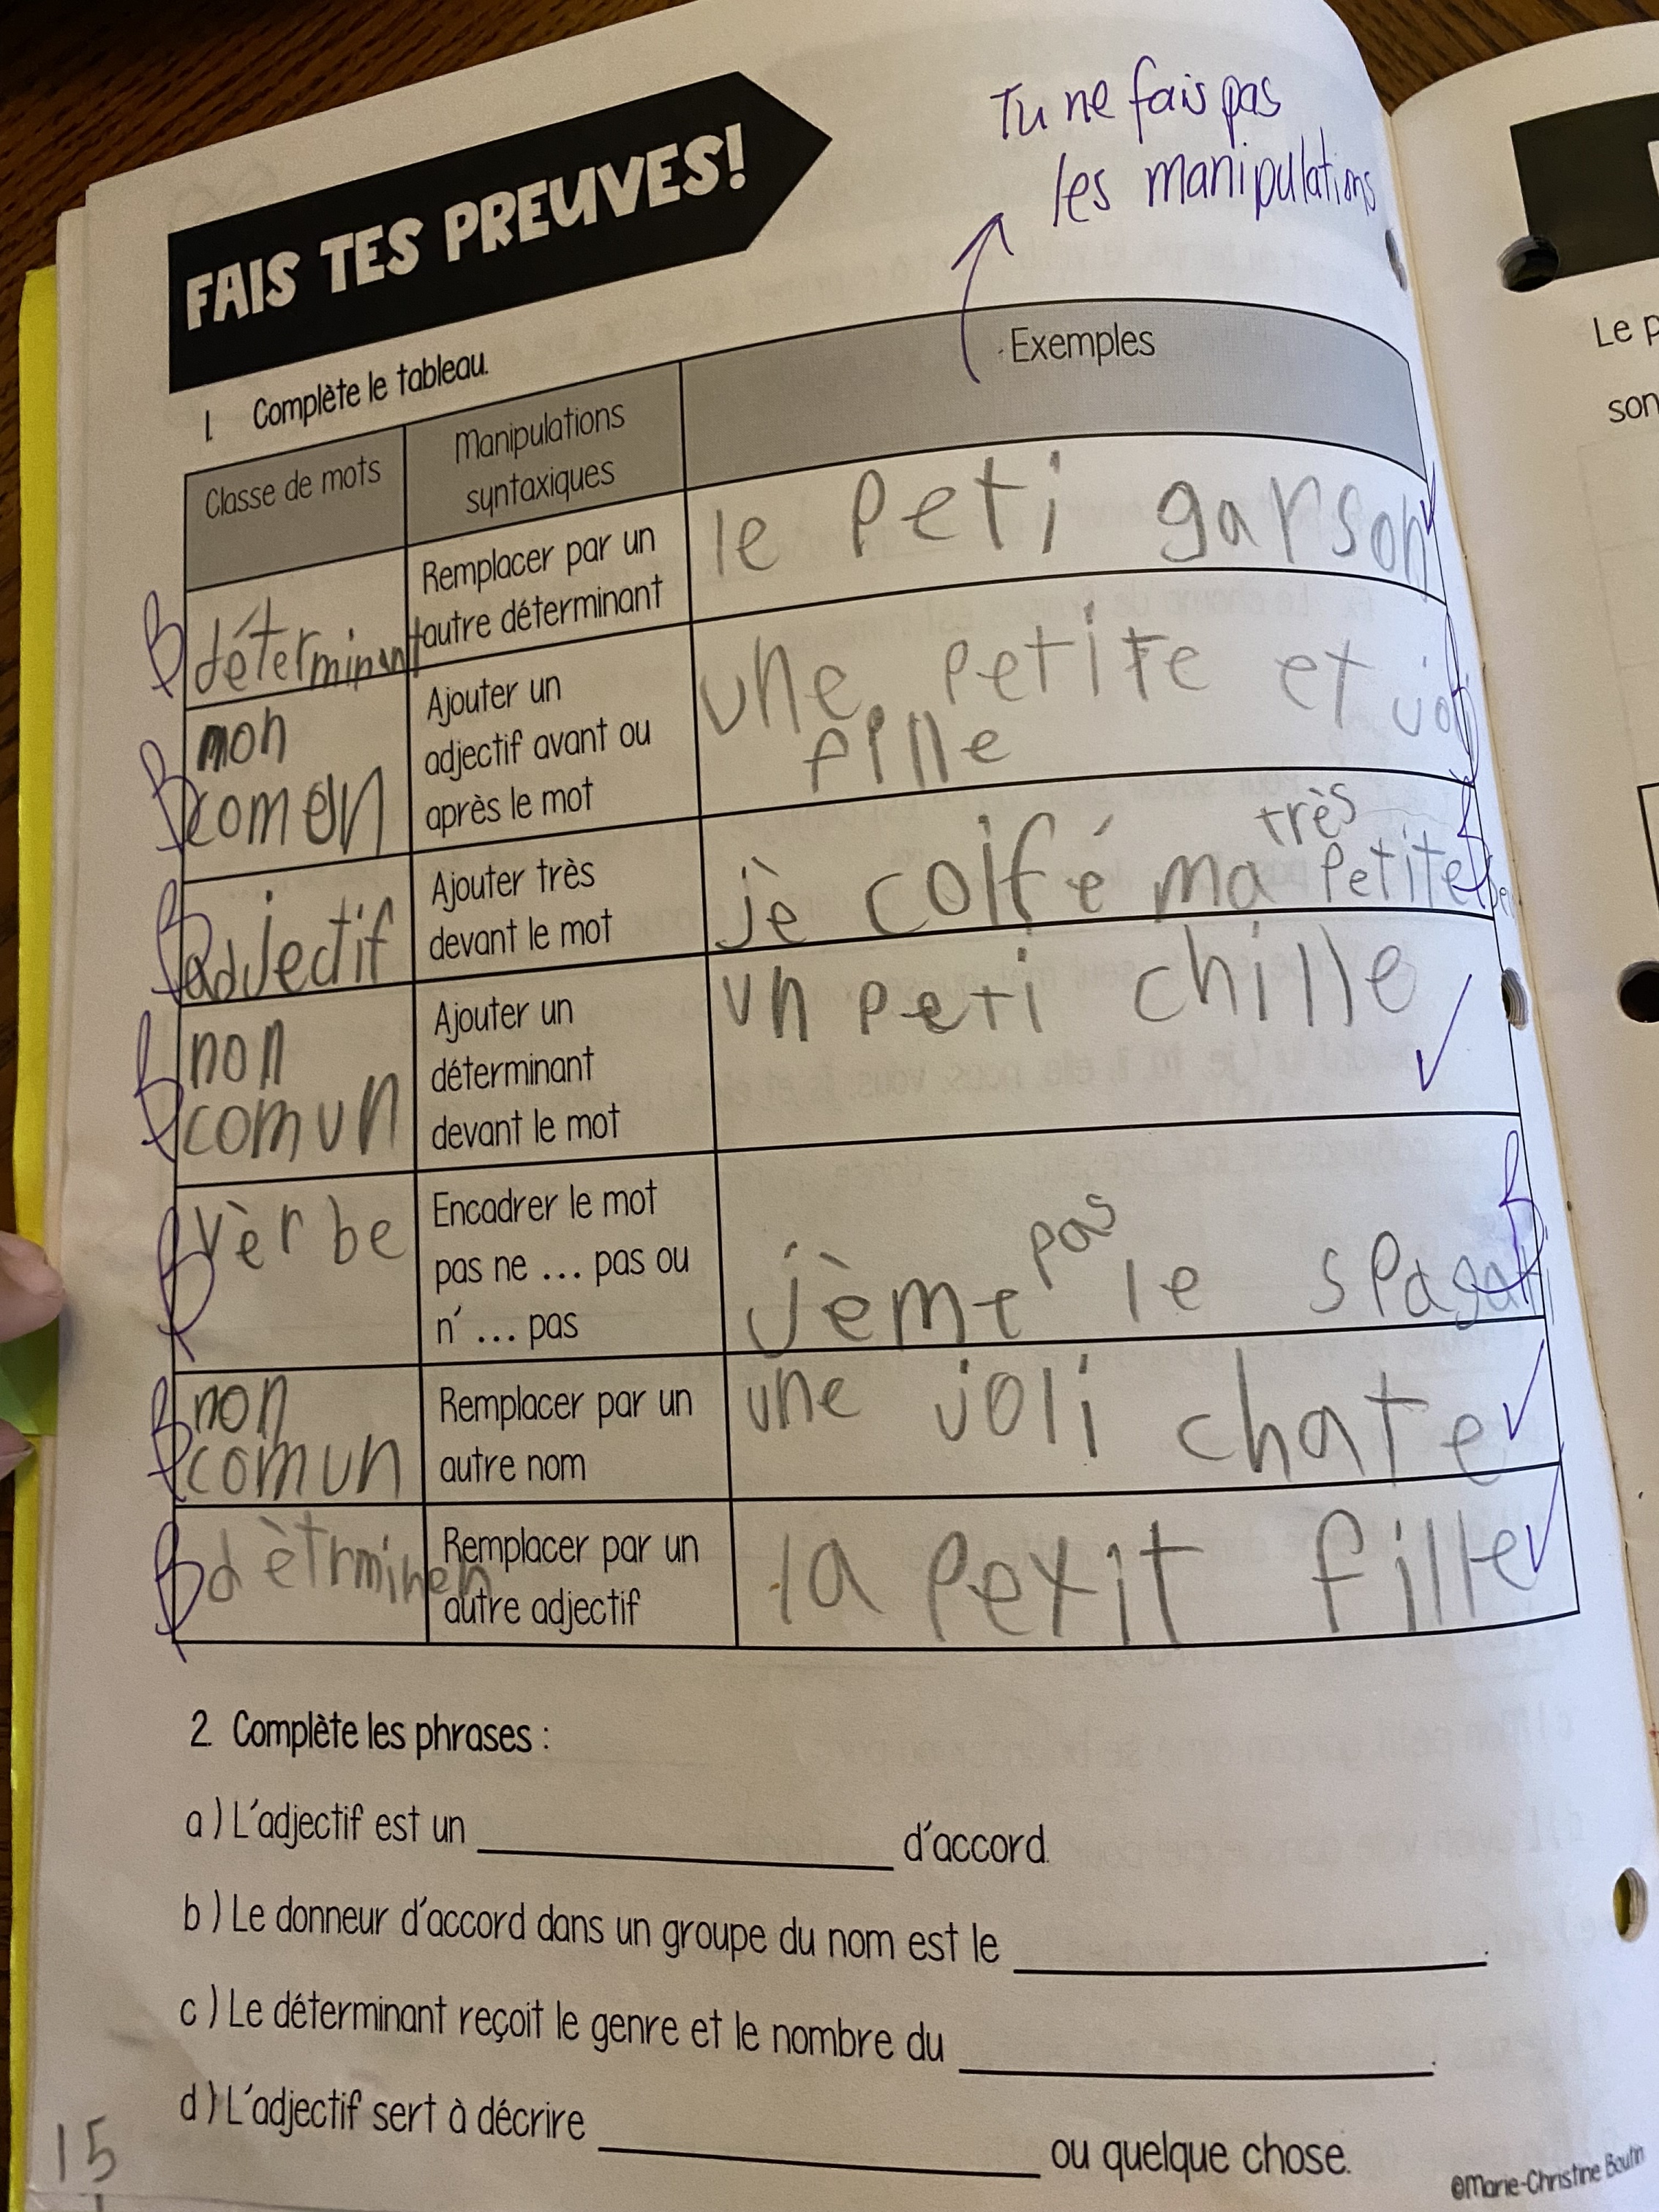 Tu ne fais pas
les manipulations
FAIS TES PREUVES!
1. Complète le tableau.
Classe de mots
Manipulations
syntaxiques
Exemples
déterminant
Remplacer par un
autre déterminant
le peti garson
mon
comen
Ajouter un
adjectif avant ou
après le mot
une petite et
fille
adjectif
Ajouter très
devant le mot
très
jè coifé ma petite
non
comun
Ajouter un
déterminant
devant le mot
un peti chille
vèrbe
Encadrer le mot
pas ne ... pas ou
n' ... pas
pas
jème le spagati
non
comun
Remplacer par un
autre nom
une joli chate
dètrminen
Remplacer par un
autre adjectif
la petit fille
2. Complète les phrases :
a ) L'adjectif est un ____ d'accord.
b ) Le donneur d'accord dans un groupe du nom est le ____.
c ) Le déterminant reçoit le genre et le nombre du ____.
d ) L'adjectif sert à décrire ____ ou quelque chose.
15
©Marie-Christine Boutin
Le p
son